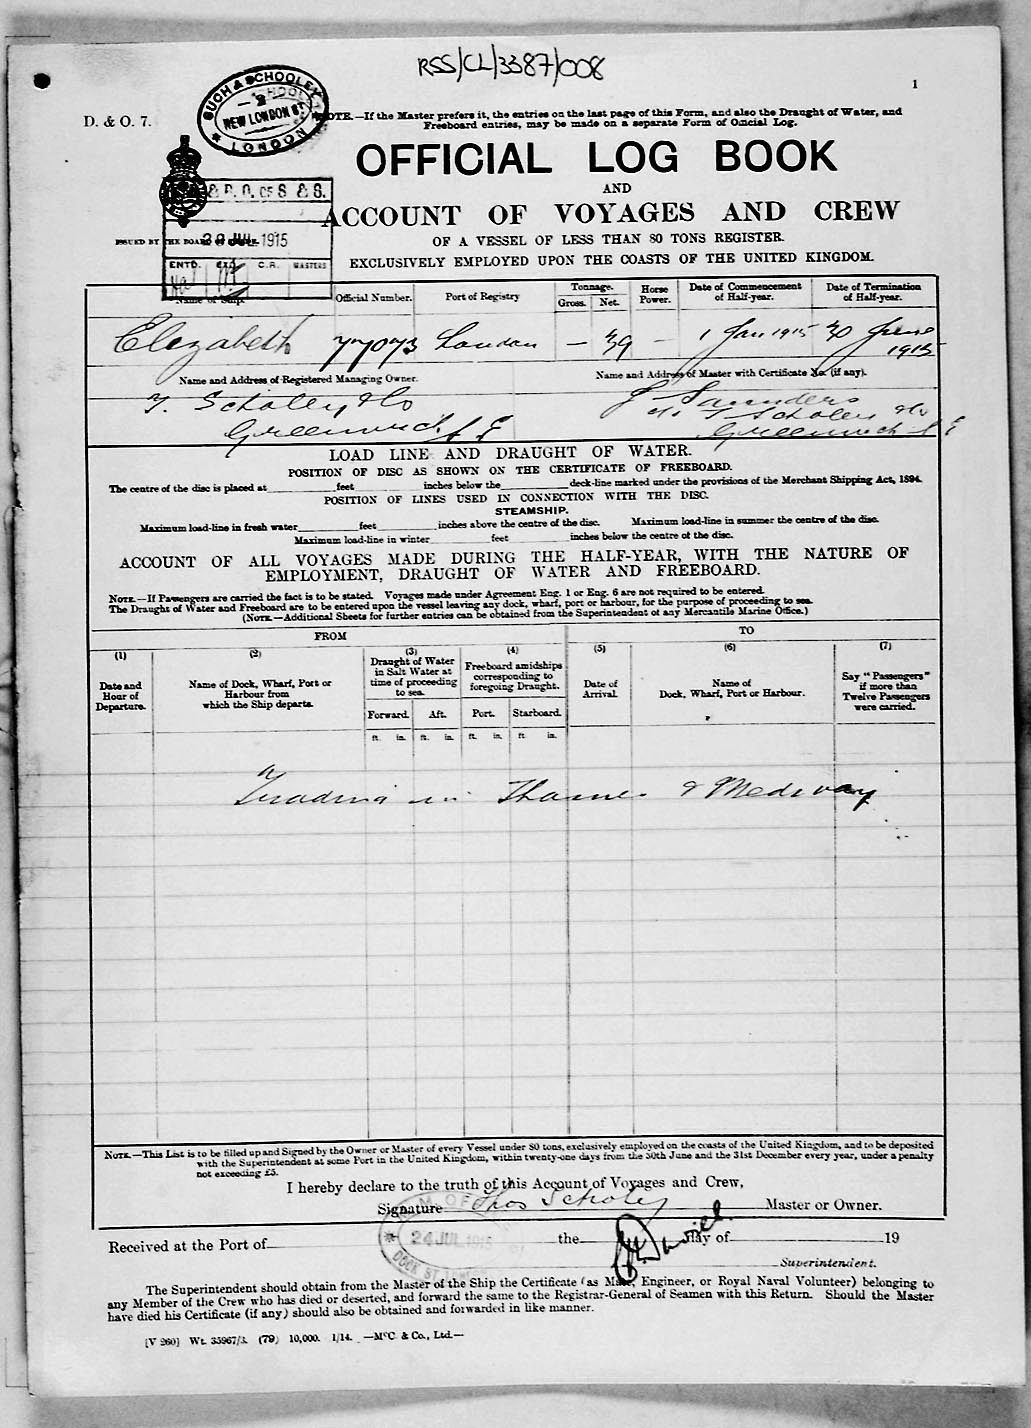 RSS/CL/3387/008
1
D. & O. 7.
SUCH & SCHOOLEY
2
NEW LONDON ST
LONDON
NOTE.—If the Master prefers it, the entries on the last page of this Form, and also the Draught of Water, and
Freeboard entries, may be made on a separate Form of Official Log.
OFFICIAL LOG BOOK
AND
ACCOUNT OF VOYAGES AND CREW
OF A VESSEL OF LESS THAN 80 TONS REGISTER.
EXCLUSIVELY EMPLOYED UPON THE COASTS OF THE UNITED KINGDOM.
& R. O. OF S. & S.
ISSUED BY THE BOARD
JUL 1915
ENTD. C.R. MASTERS
Name of Ship. Official Number. Port of Registry Tonnage. Gross. Net. Horse Power. Date of Commencement of Half-year. Date of Termination of Half-year.
Elizabeth 77073 London — 39 — 1 Jan 1915 30 June 1915
Name and Address of Registered Managing Owner. Name and Address of Master with Certificate No. (if any).
T. Scholey & Co J Saunders
c/o T Scholey & Co
Greenwich S E Greenwich S E
LOAD LINE AND DRAUGHT OF WATER.
POSITION OF DISC AS SHOWN ON THE CERTIFICATE OF FREEBOARD.
The centre of the disc is placed at feet inches below the deck-line marked under the provisions of the Merchant Shipping Act, 1894.
POSITION OF LINES USED IN CONNECTION WITH THE DISC.
STEAMSHIP.
Maximum load-line in fresh water feet inches above the centre of the disc. Maximum load-line in summer the centre of the disc.
Maximum load-line in winter feet inches below the centre of the disc.
ACCOUNT OF ALL VOYAGES MADE DURING THE HALF-YEAR, WITH THE NATURE OF
EMPLOYMENT, DRAUGHT OF WATER AND FREEBOARD.
NOTE.—If Passengers are carried the fact is to be stated. Voyages made under Agreement Eng. 1 or Eng. 6 are not required to be entered.
The Draught of Water and Freeboard are to be entered upon the vessel leaving any dock, wharf, port or harbour, for the purpose of proceeding to sea.
(NOTE.—Additional Sheets for further entries can be obtained from the Superintendent of any Mercantile Marine Office.)
FROM TO
(1) (2) (3) (4) (5) (6) (7)
Date and Hour of Departure. Name of Dock, Wharf, Port or Harbour from which the Ship departs. Draught of Water in Salt Water at time of proceeding to sea. Freeboard amidships corresponding to foregoing Draught. Date of Arrival. Name of Dock, Wharf, Port or Harbour. Say "Passengers" if more than Twelve Passengers were carried.
Forward. Aft. Port. Starboard.
ft. in. ft. in. ft. in. ft. in.
Trading in Thames & Medway
NOTE.—This List is to be filled up and Signed by the Owner or Master of every Vessel under 80 tons, exclusively employed on the coasts of the United Kingdom, and to be deposited
with the Superintendent at some Port in the United Kingdom, within twenty-one days from the 30th June and the 31st December every year, under a penalty
not exceeding £5.
I hereby declare to the truth of this Account of Voyages and Crew,
Signature Thos Scholey Master or Owner.
Received at the Port of the day of 19
24 JUL 1915
DOCK ST
Superintendent.
The Superintendent should obtain from the Master of the Ship the Certificate (as Mate, Engineer, or Royal Naval Volunteer) belonging to
any Member of the Crew who has died or deserted, and forward the same to the Registrar-General of Seamen with this Return. Should the Master
have died his Certificate (if any) should also be obtained and forwarded in like manner.
[V 260] Wt. 35967/3. (79) 10,000. 1/14. —McC. & Co., Ltd.—